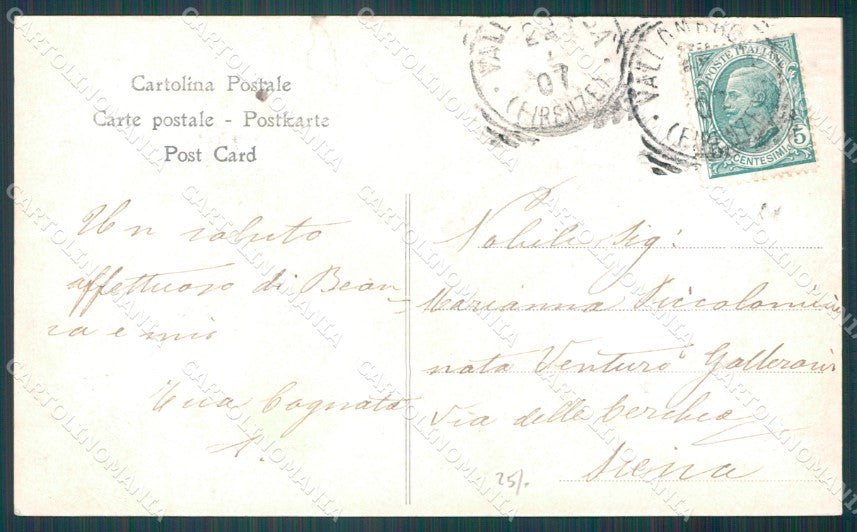 Cartolina Postale
Carte postale - Postkarte
Post Card
VALLOMBROSA
07
(FIRENZE)
VALLOMBROSA
(FIRENZE)
POSTE ITALIANE
5
CENTESIMI
Un saluto
affettuoso di Bean-
ra e mio
Tua Cognata
A.
Nobile Sig:
Marianna Piccolomini
nata Venturi Gallerani
Via delle Cerchia
Siena
25/.
CARTOLINOMANIA